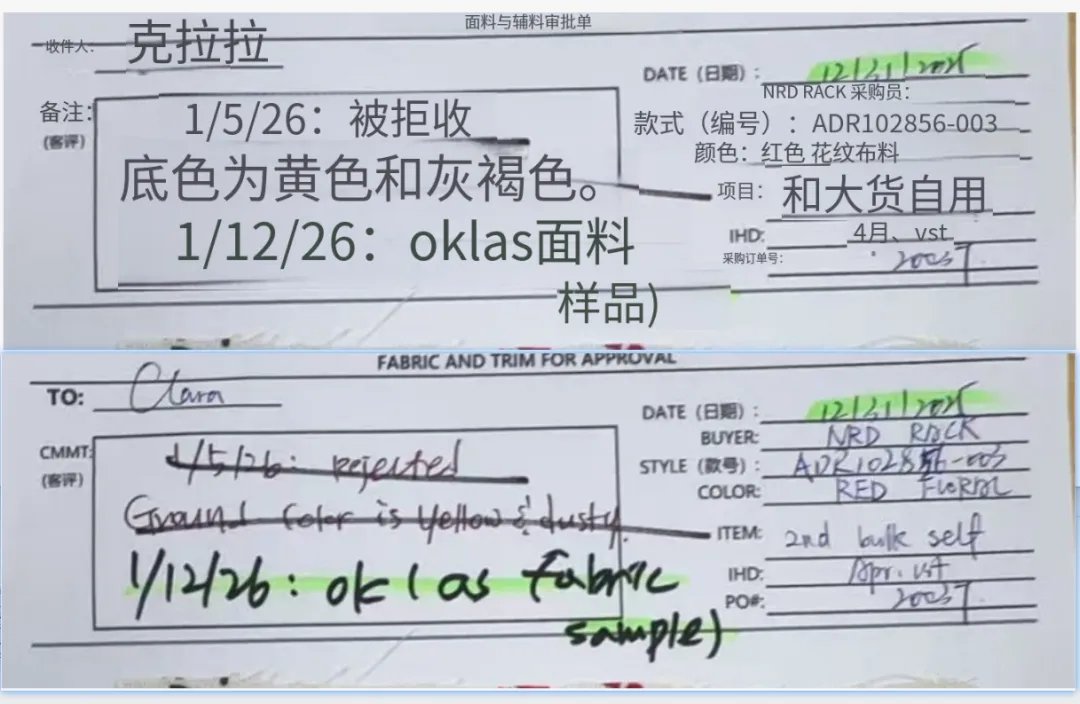 面料与辅料审批单
收件人： 克拉拉
DATE（日期）： 12/31/2025
NRD RACK 采购员：
备注：
(客评)
1/5/26：被拒收
底色为黄色和灰褐色。
1/12/26：oklas面料
样品)
款式（编号）：ADR102856-003
颜色：红色 花纹布料
项目： 和大货自用
IHD: 4月、vst
采购订单号： 20037
FABRIC AND TRIM FOR APPROVAL
TO: Clara
DATE（日期）： 12/31/2025
BUYER: NRD RACK
CMMT:
(客评)
1/5/26: Rejected
Ground color is yellow & dusty.
1/12/26: ok (as fabric
sample)
STYLE（款号）: ADR102856-003
COLOR: RED FLORAL
ITEM: 2nd bulk self
IHD: Apr. 1st
PO#: 20037